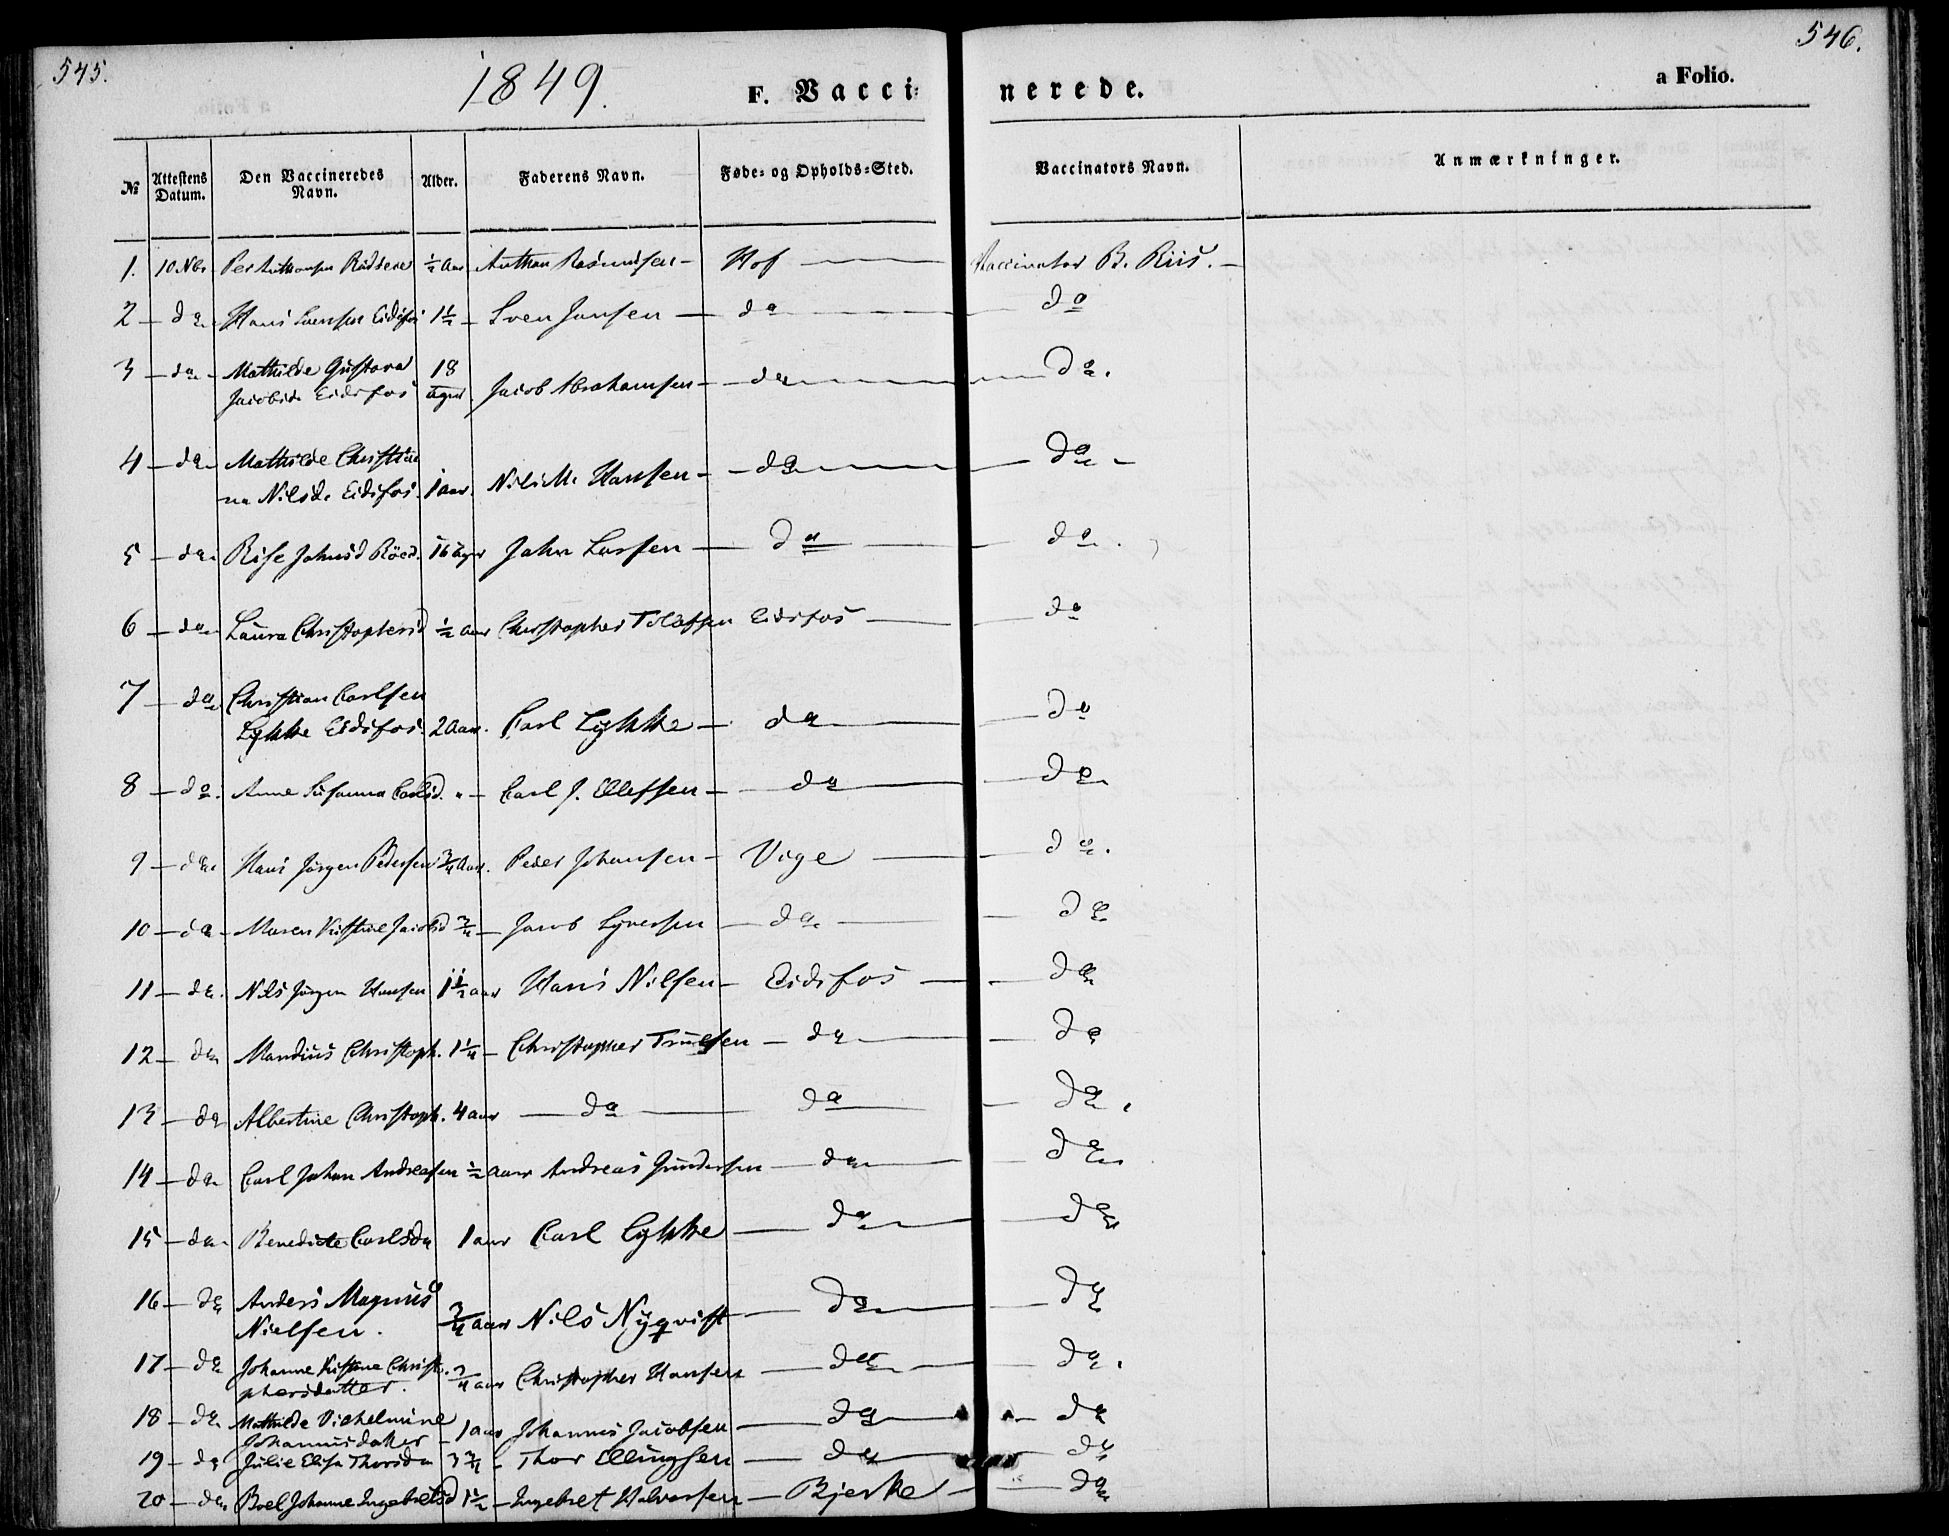 545.
546.
1849.
F. Vacci=
nerede.
a Folio.
№ Attestens Datum. Den Vaccineredes Navn. Alder. Faderens Navn. Føde= og Opholds=Sted. Vaccinators Navn. Anmærkninger.
1. 10 Nbr Per Anthonsen ½ Aar Anthon Rasmussen Hof Vaccinator B. Riis.
2 do Hans Svensen Eidsfos 1½ Sven Jansen do do
3 do Mathilde Gustava 18
Jacobsd. Eidsfos Uger Jacob Abrahamsen do do.
4 do Mathilde Christia
na Nilsd. Eidsfos. 1 aar. Nils M. Hansen do do
5 do Johnsd 16 Uger John Larsen do do.
6 do Laura Christophersd ½ aar Christopher Tolefsen Eidsfos do
7 do Christian Carlsen
Lykke Eidsfos. 2 Aar. Carl Lykke do do
8 do. Anne Susanna Carlsd. " Carl J. Ellefsen do do
9 do. Hans Jörgen Pedersen ¾ Aar. Peder Johansen Vige do.
10 do Maren Kistine Jacobsd ¾ Jacob Syversen do do
11 do. Nils Jörgen Hansen 1½ aar Hans Nilsen Eidsfos do
12 do Mandius Christoph. 1¼ Christopher Truelsen do do
13 do Albertine Christoph. 4 aar do do do.
14 do Carl Johan Andreasen ½ aar Andreas Gundersen do do
15 do Benedicte Carlsda 1 aar Carl Lykke do do
16 do Anders Magnus
Nielsen. ¾ aar Nils Nyqvist do do
17 do Johanne Kistine Christo
phersdatter. ¾ aar Christopher Hansen do do.
18 do Mathilde Vilhelmine
Johannisdatter 1 aar Johannes Jacobsen do do
19 do Julie Elisa Thorsda 3¾ Thor Ellingsen do do
20 do Boel Johanne Ingebretsd 1½ Ingebret Halvorsen Bjerke do